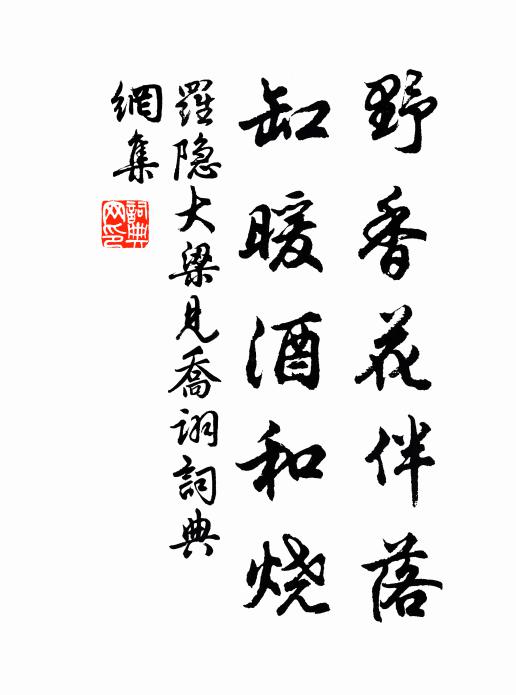 野香花伴落
缸暖酒和烧
羅隐大梁見喬诩詞典
網集
詞典
网印